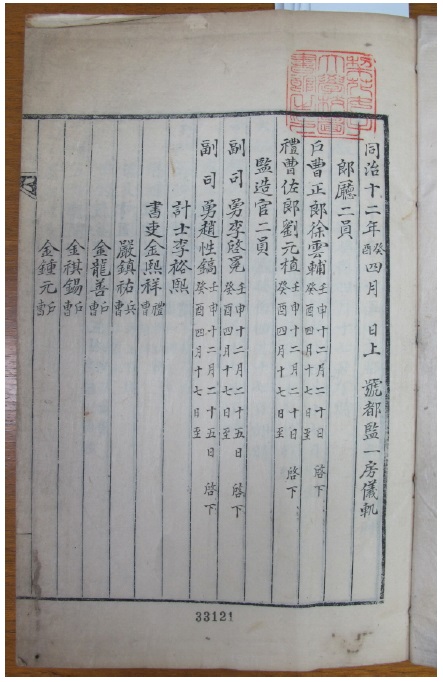 同治十二年癸酉四月 日上 號都監一房儀軌
郎廳二員
戶曹正郎徐雲輔 壬申十二月二十日 啓下 癸酉四月十七日至
禮曹佐郎劉元植 壬申十二月二十日 啓下 癸酉四月十七日至
監造官二員
副司勇李啓冕 壬申十二月二十五日 啓下 癸酉四月十七日至
副司勇趙性鎬 壬申十二月二十五日 啓下 癸酉四月十七日至
計士李裕熙
書吏金熙祥 禮曹
嚴鎮祐 兵曹
金龍善 戶曹
金祺錫 戶曹
金鍾元 戶曹
33121